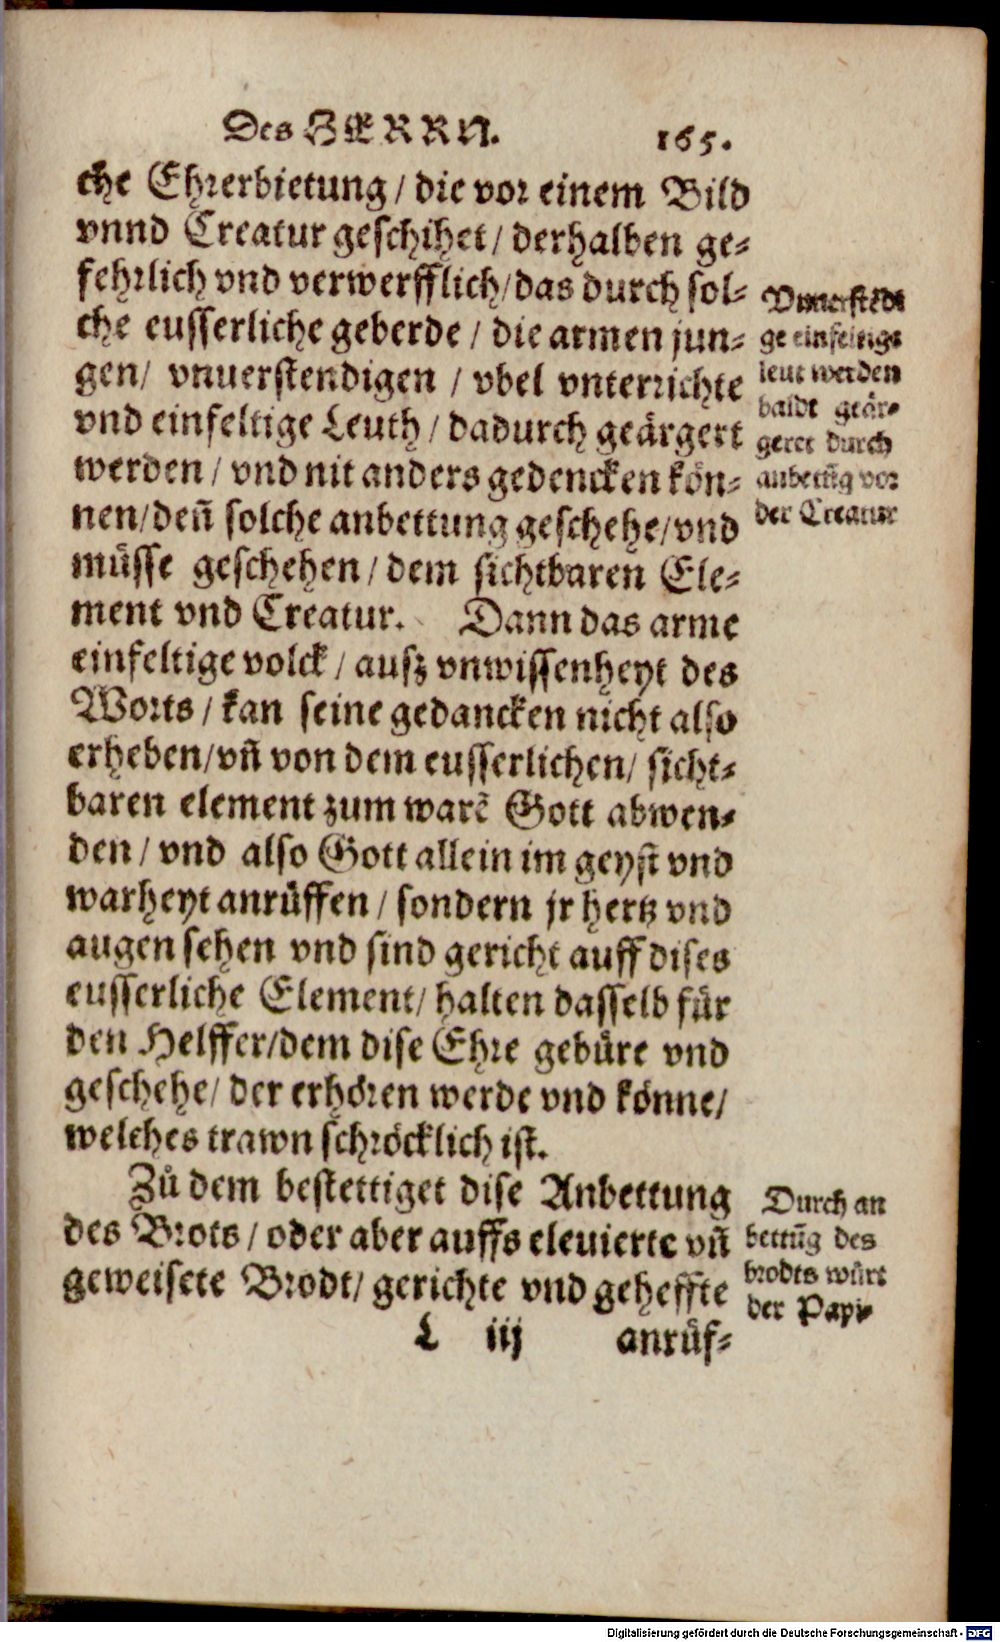 Des HERRN. 165.
che Ehrerbietung / die vor einem Bild
vnnd Creatur geschihet / derhalben ge-
fehrlich vnd verwerfflich / das durch sol-
che eusserliche geberde / die armen jun-
gen / vnuerstendigen / vbel vnterrichte
vnd einfeltige Leuth / dadurch geärgert
werden / vnd nit anders gedencken kön-
nen / den̄ solche anbettung geschehe / vnd
müsse geschehen / dem sichtbaren Ele-
ment vnd Creatur. Dann das arme
einfeltige volck / ausz vnwissenheyt des
Worts / kan seine gedancken nicht also
erheben / vn̄ von dem eusserlichen / sicht-
baren element zum warē Gott abwen-
den / vnd also Gott allein im geyst vnd
warheyt anrüffen / sondern jr hertz vnd
augen sehen vnd sind gericht auff dises
eusserliche Element / halten dasselb für
den Helffer / dem dise Ehre gebüre vnd
geschehe / der erhören werde vnd könne /
welches trawn schröcklich ist.
Zů dem bestettiget dise Anbettung
des Brots / oder aber auffs eleuierte vn̄
geweisete Brodt / gerichte vnd geheffte
L iij anrüf-
Vnuerstēdi
ge einfeltige
leut werden
baldt geär-
geret durch
anbettūg vor
der Creatur
Durch an
bettūg des
brodts würt
der Papi-
Digitalisierung gefördert durch die Deutsche Forschungsgemeinschaft - DFG